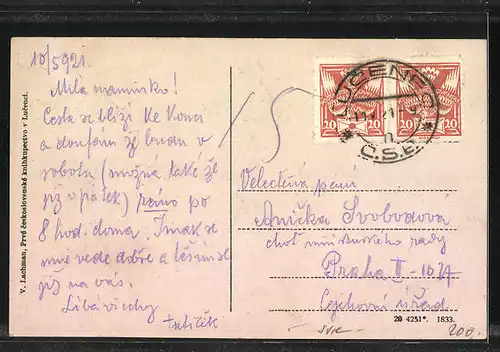 10/5921.
Milá maminko!
Cesta se blíží ke konci
a doufám že budu v
sobotu (možná také že
již v pátek) ráno po
8 hod. doma. Jinak se
mně vede dobře a těším se
již na vás.
Líbá všechny
tatíček
V. Lachman, Prvé československé kníhkupectvo v Lučenci.
20
20
LUČENEC
Č.S.P.
Velectěná paní
Anička Svobodová
choť minist. rady
Praha II - 1027
Cejchovní úřad
20 4251*. 1833.
200.